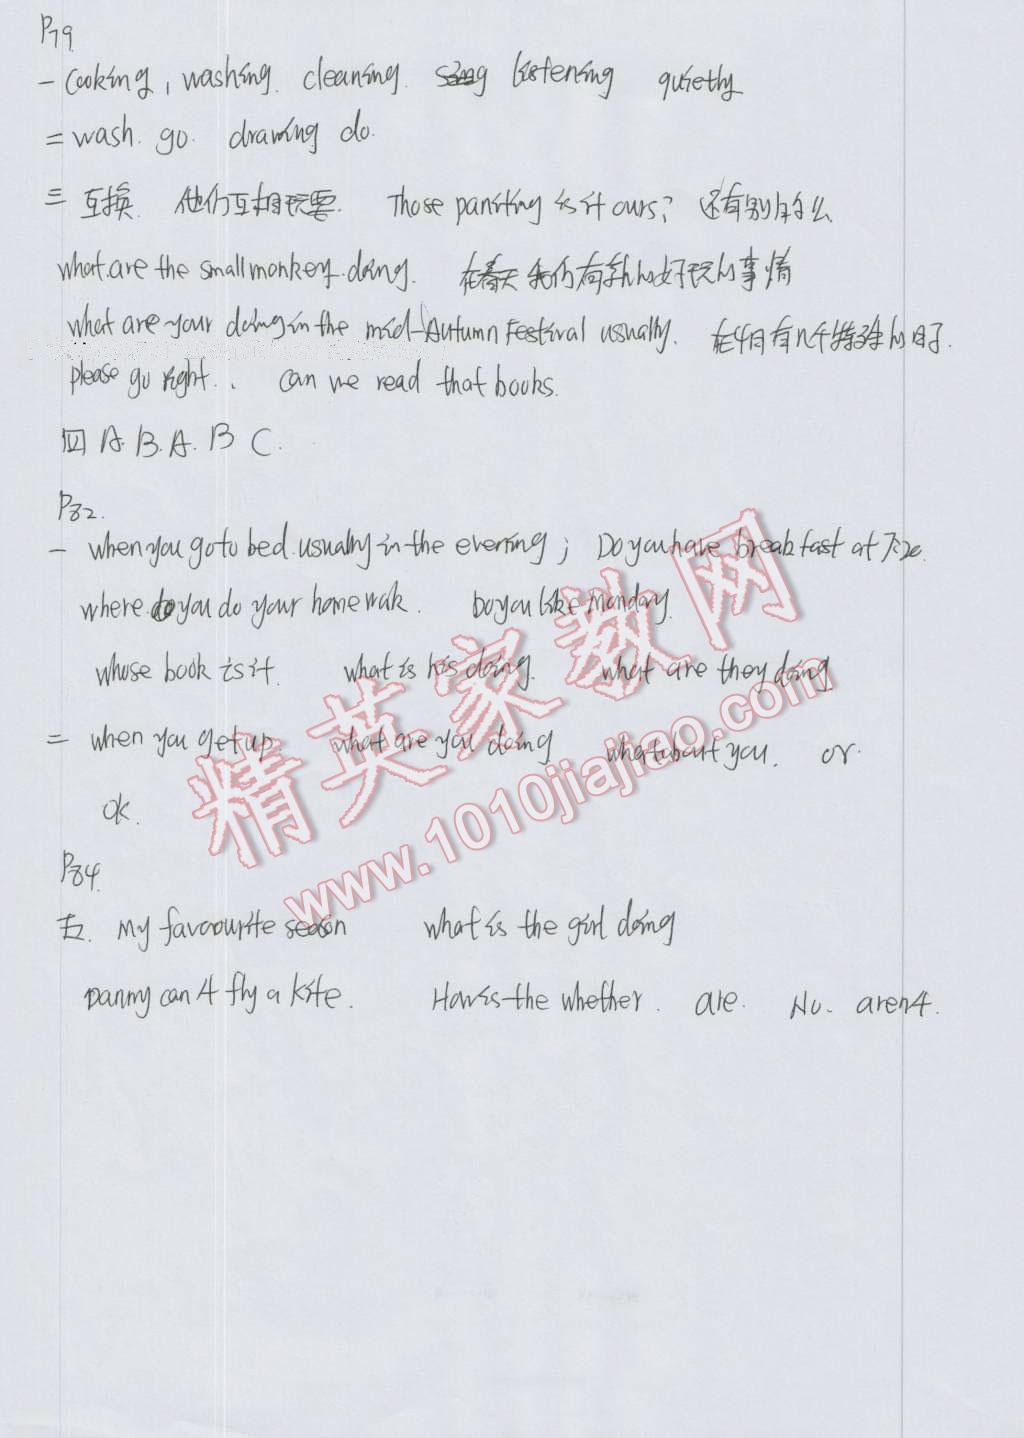 P79
一 Cooking, washing. cleaning. sing listening quietly
二 wash. go. drawing do.
三 互换. 他们互相玩耍. Those paniting is it ours? 还有别的么
what are the small monkey doing. 在春天我们有新的好玩的事情
what are your doing in the mid-Autumn Festival usually. 在4月有几个特殊的日子.
please go right.. can we read that books.
四 A. B. A. B C.
P82.
一 when you go to bed usually in the evening; Do you have breakfast at 7:20.
where do you do your homewak. Do you like Monday.
whose book is it. what is his doing. what are they doing
二 when you get up. what are you doing what about you. or.
ok.
P84.
五. My favoourite season what is the girl doing
Danny can 4 fly a kite. How is the whether. are. No. aren4.
精英家教网
www.1010jiajiao.com